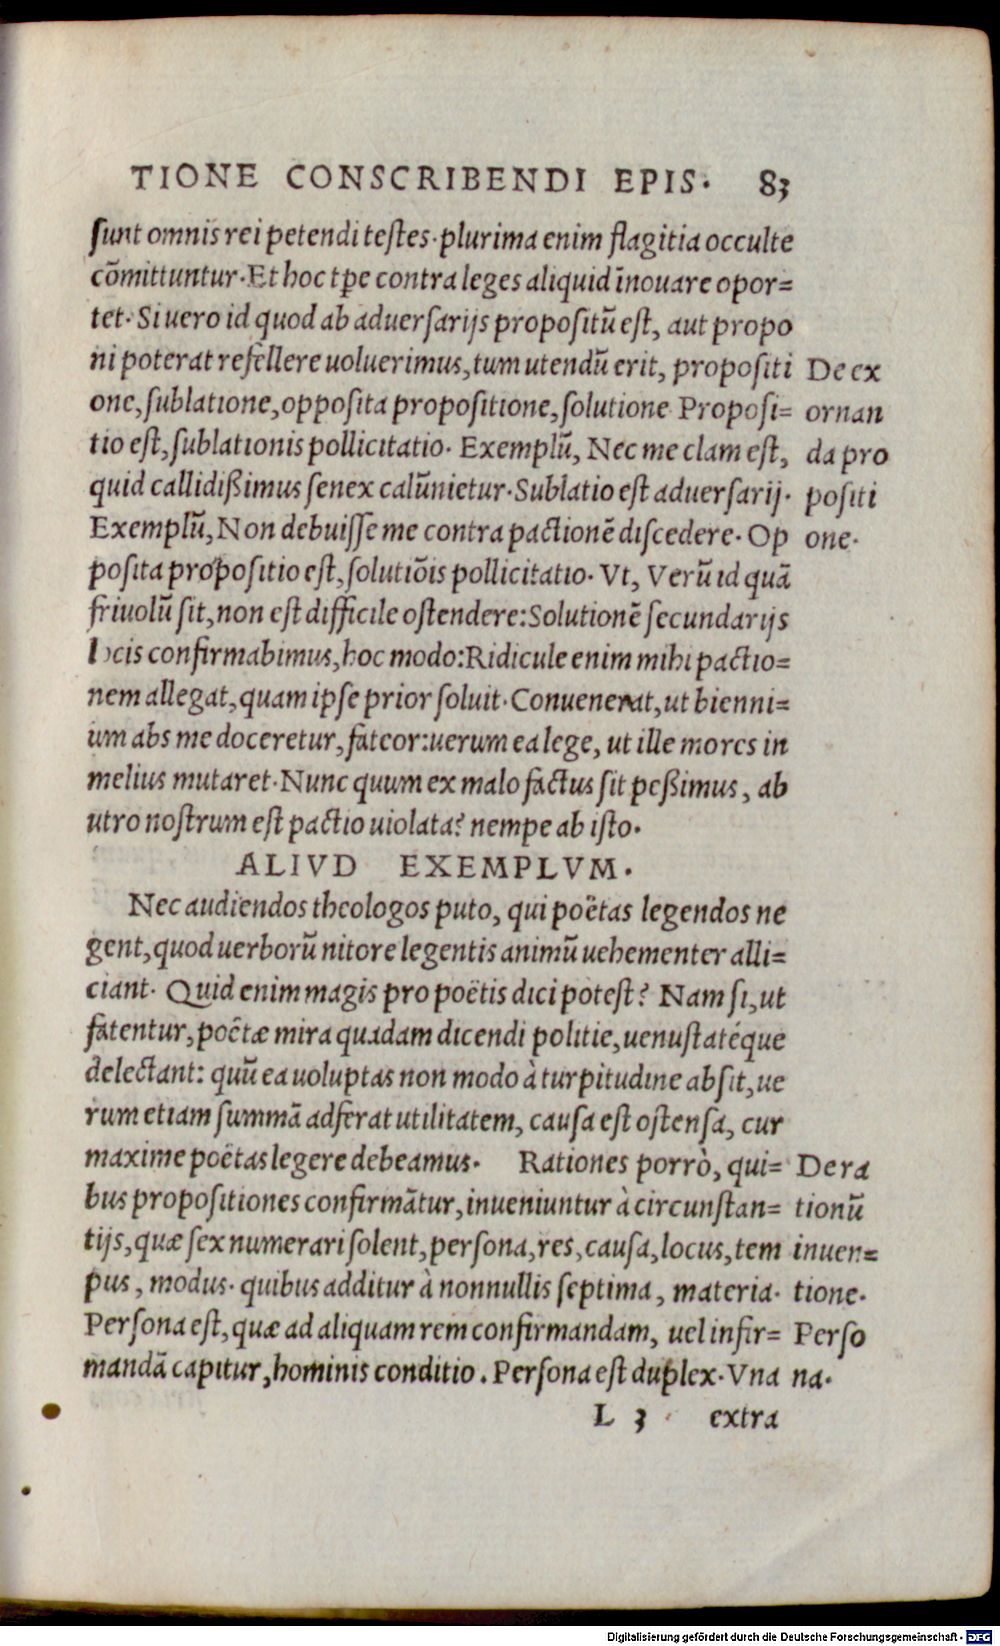 TIONE CONSCRIBENDI EPIS. 83
sunt omnis rei petendi testes. plurima enim flagitia occulte
cõmittuntur. Et hoc tpe contra leges aliquid īnouare opor=
tet. Si uero id quod ab aduersarijs propositū est, aut propo
ni poterat refellere uoluerimus, tum utendū erit, propositi
one, sublatione, opposita propositione, solutione. Proposi=
tio est, sublationis pollicitatio. Exemplū, Nec me clam est,
quid callidißimus senex calūnietur. Sublatio est aduersarij.
Exemplū, Non debuisse me contra pactionē discedere. Op
posita propositio est, solutiõis pollicitatio. Vt, Verū id quā
friuolū sit, non est difficile ostendere: Solutionē secundarijs
locis confirmabimus, hoc modo: Ridicule enim mihi pactio=
nem allegat, quam ipse prior soluit. Conuenerat, ut bienni=
um abs me doceretur, fateor: uerum ea lege, ut ille mores in
melius mutaret. Nunc quum ex malo factus sit peßimus, ab
utro nostrum est pactio uiolata? nempe ab isto.
De ex
ornan
da pro
positi
one.
ALIVD EXEMPLVM.
Nec audiendos theologos puto, qui poëtas legendos ne
gent, quod uerborū nitore legentis animū uehementer alli=
ciant. Quid enim magis pro poëtis dici potest? Nam si, ut
fatentur, poëtæ mira quadam dicendi politie, uenustatéque
delectant: quū ea uoluptas non modo à turpitudine absit, ue
rum etiam summā adferat utilitatem, causa est ostensa, cur
maxime poëtas legere debeamus. Rationes porrò, qui=
bus propositiones confirmātur, inueniuntur à circunstan=
tijs, quæ sex numerari solent, persona, res, causa, locus, tem
pus, modus. quibus additur à nonnullis septima, materia.
Persona est, quæ ad aliquam rem confirmandam, uel infir=
mandā capitur, hominis conditio. Persona est duplex. Vna
De ra
tionū
inuen=
tione.
Perso
na.
L 3 extra
Digitalisierung gefördert durch die Deutsche Forschungsgemeinschaft - DFG